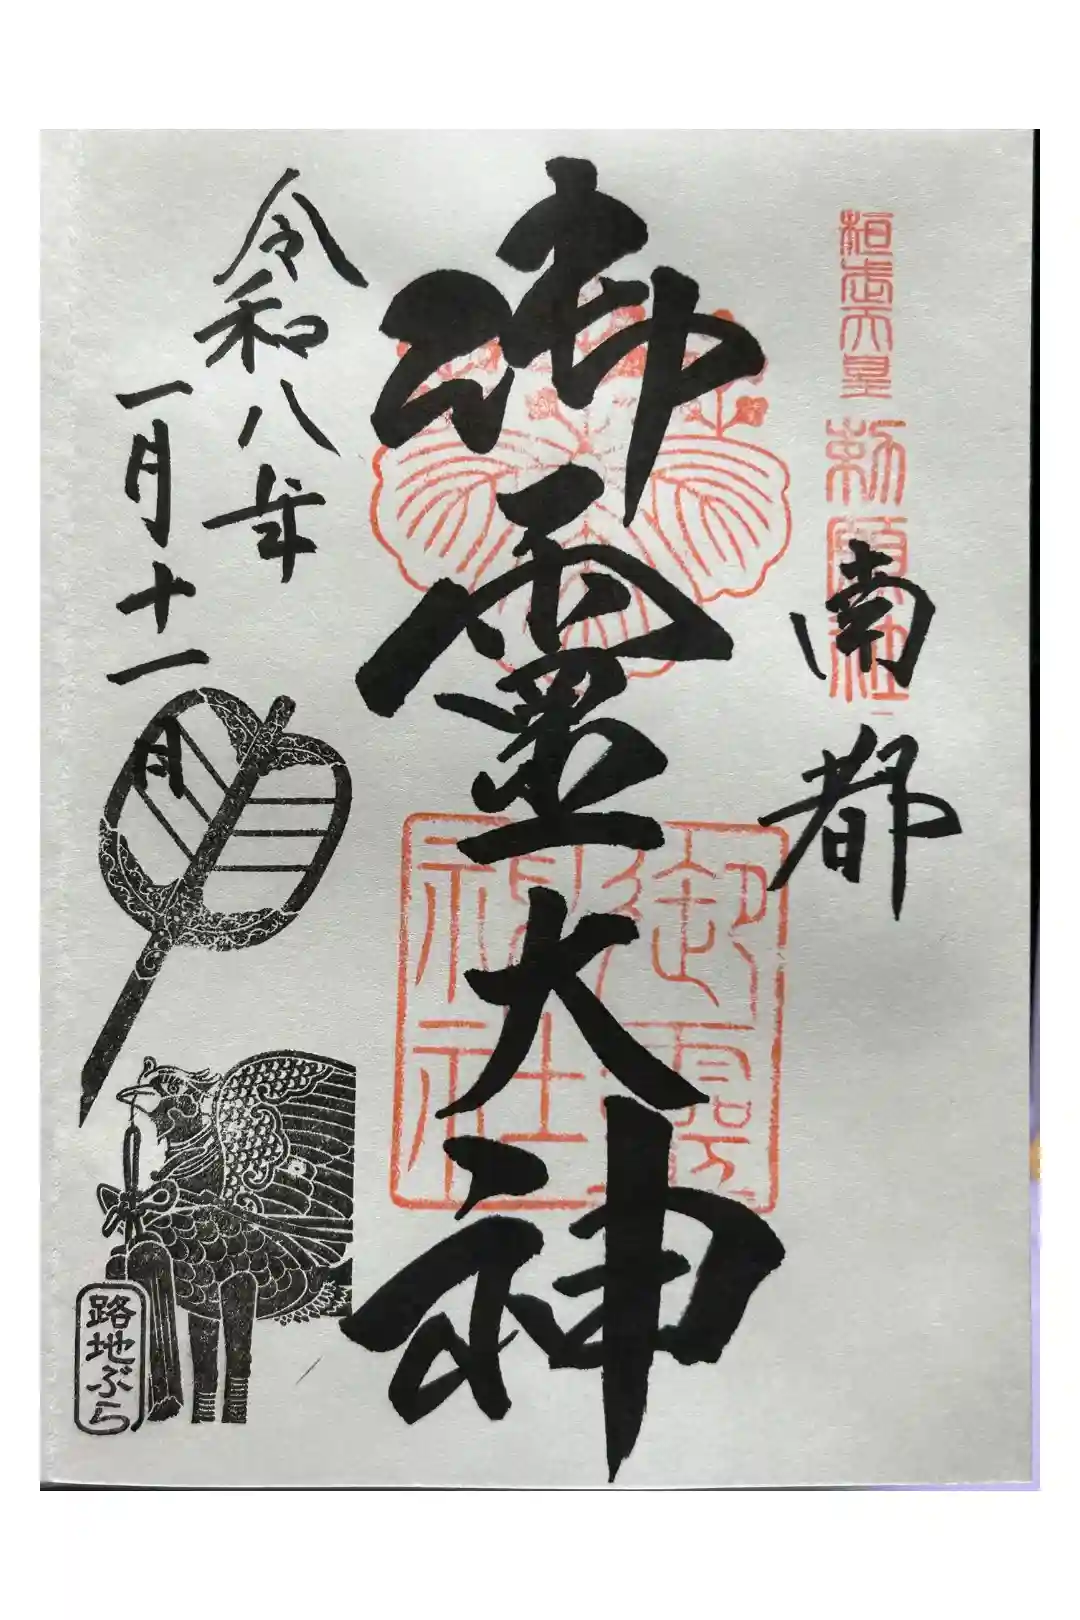 桓武天皇 勅願社
南都
御霊大神
御霊神社
令和八年
一月十一日
路地ぶら